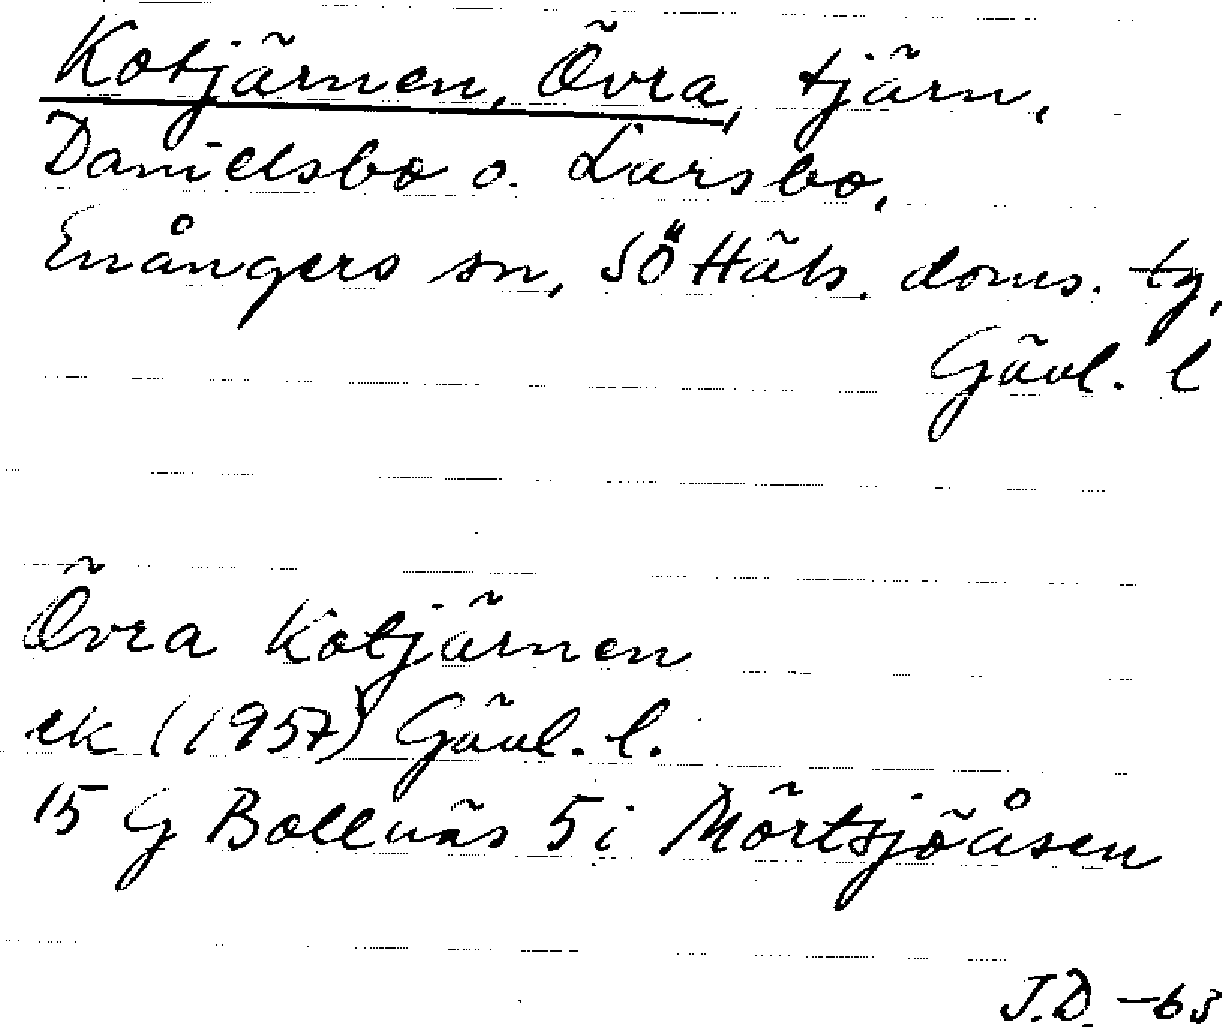 Kotjärnen, Övra, tjärn,
Danielsbo o. Larsbo,
Enångers sn, SÖ Häls. doms. tg,
Gävl. l
Övra Kotjärnen
ek (1957) Gävl. l.
15 G Bollnäs 5 i Mörtsjöåsen
J.D. -63